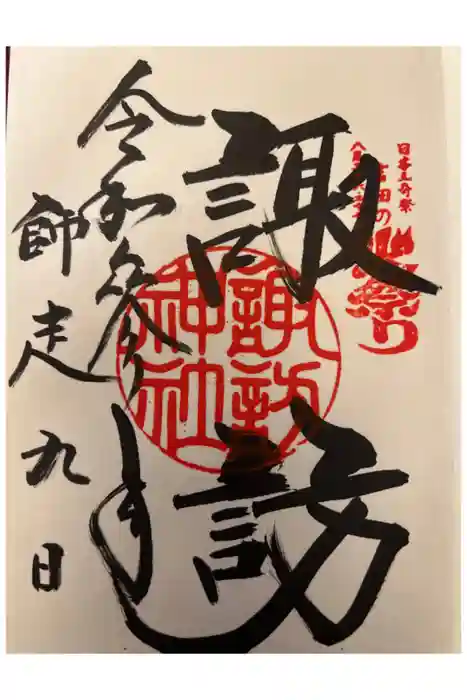 日本三奇祭
吉田の
火祭り
諏訪
諏訪
神社
令和参年
師走九日